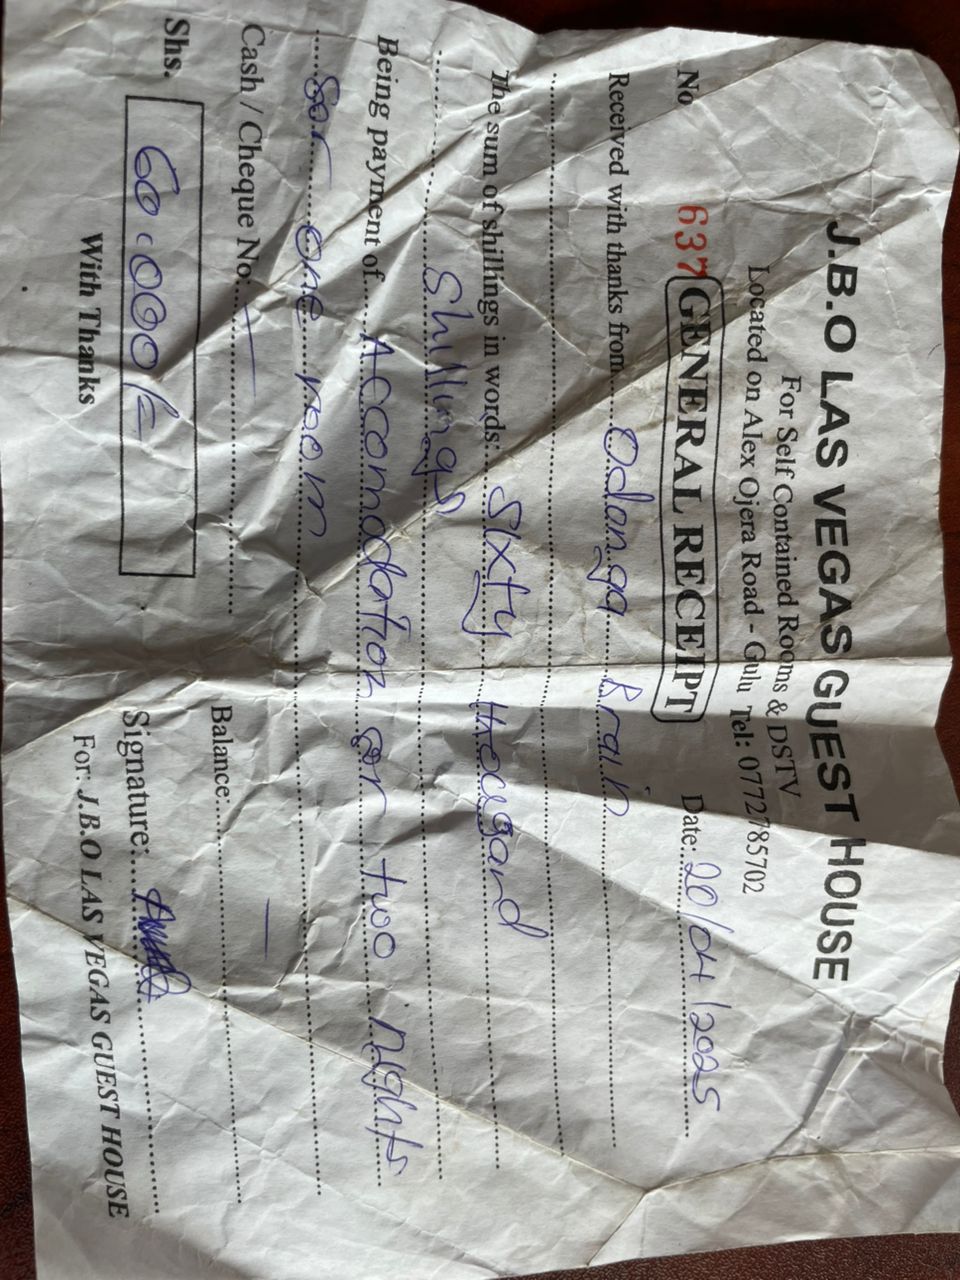 J.B.O LAS VEGAS GUEST HOUSE
For Self Contained Rooms & DSTV
Located on Alex Ojera Road - Gulu Tel: 0772785702
No 637 GENERAL RECEIPT Date: 20/04/2025
Received with thanks from Odonga Brain
The sum of shillings in words: Sixty thousand
Shillings
Being payment of Accomodation for two nights
for one room
Cash / Cheque No: — Balance: —
Shs. 60.000/= Signature:
With Thanks For: J.B.O LAS VEGAS GUEST HOUSE